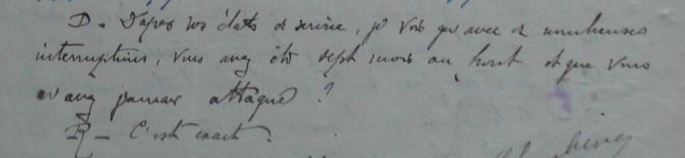 D. D'après vos états de service, je vois qu'avec de nombreuses
interruptions, vous avez été sept mois au front et que vous
n'avez jamais attaqué ?
R - C'est exact.